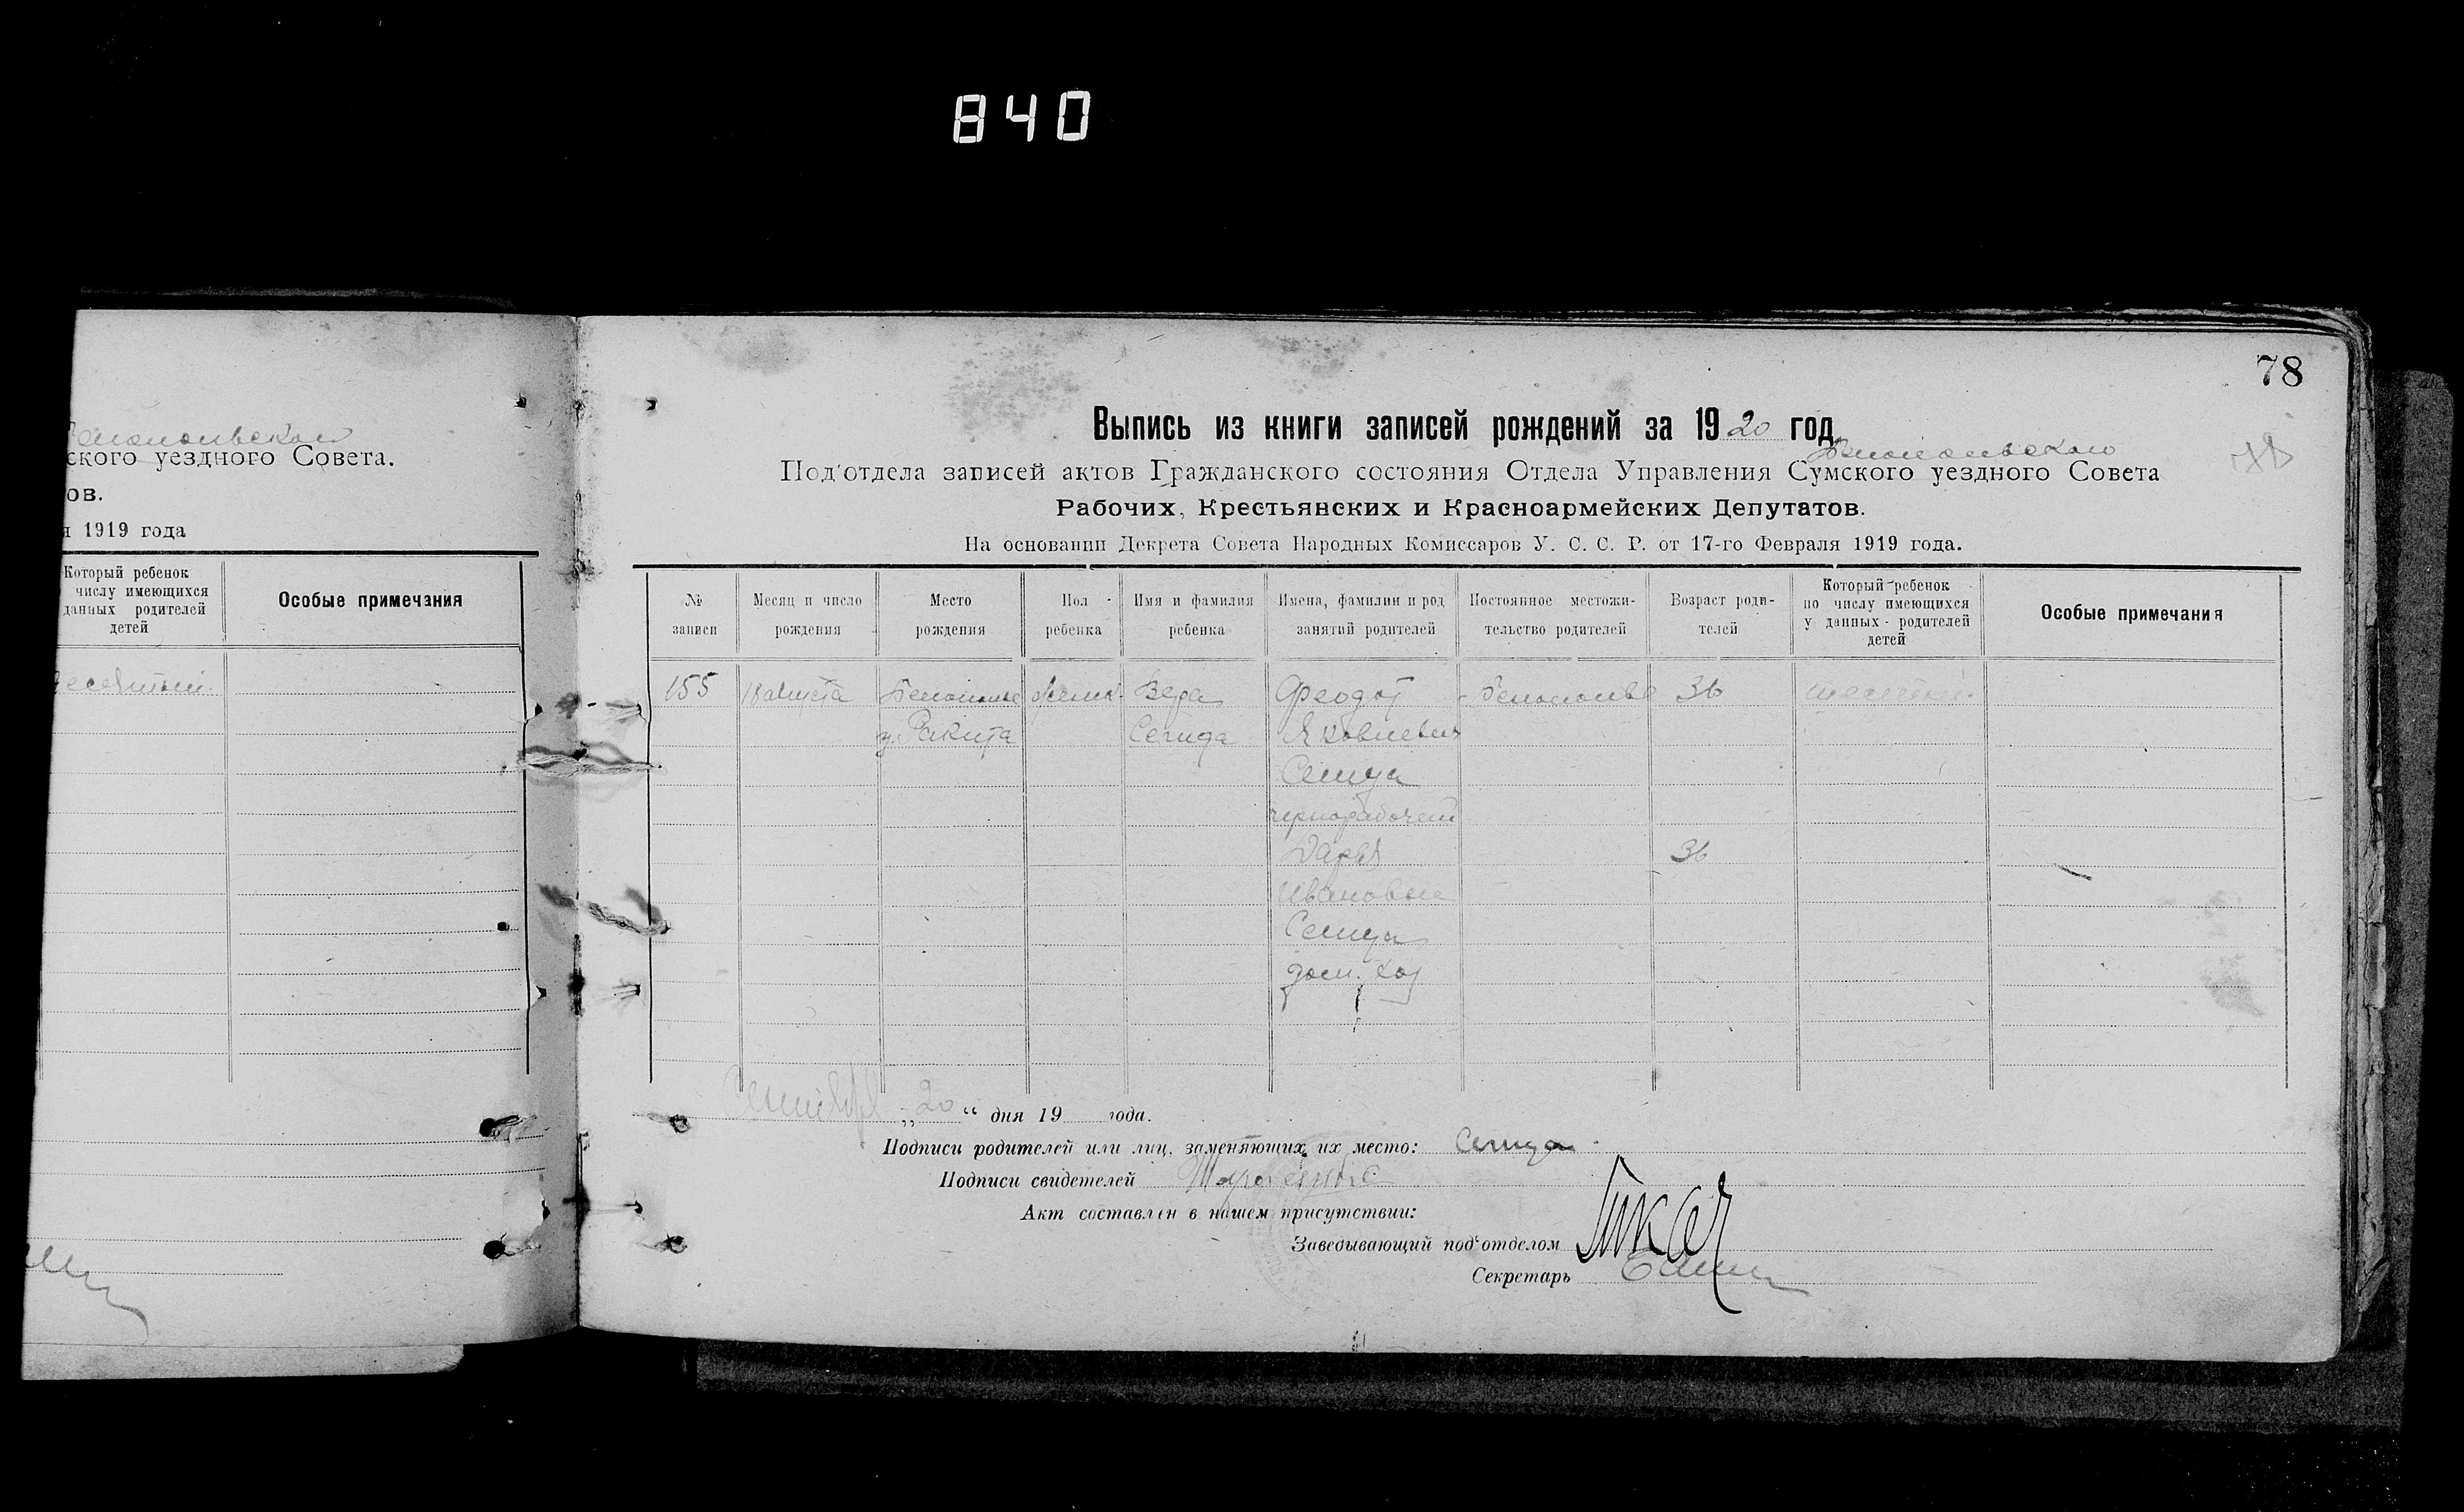 840
ского уездного Совета.
ов.
я 1919 года
Который ребенок
числу имеющихся
данных родителей
детей
Особые примечания
78
Выпись из книги записей рождений за 1920 год
Белопольского
Под'отдела записей актов Гражданского состояния Отдела Управления Сумского уездного Совета
Рабочих, Крестьянских и Красноармейских Депутатов.
На основании Декрета Совета Народных Комиссаров У. С. С. Р. от 17-го Февраля 1919 года.
№ записи
Месяц и число рождения
Место рождения
Пол ребенка
Имя и фамилия ребенка
Имена, фамилии и род занятий родителей
Постоянное местожи-
тельство родителей
Возраст роди-
телей
Который ребенок
по числу имеющихся
у данных - родителей
детей
Особые примечания
155 18 августа Белополье женск. Вера Феодот Белополье 36 шестой
у. Ракита Сегида Яковлевич
Сегида
чернорабочий
Дарья 36
Ивановна
Сегида
дом. хоз
Сентября „ 20 “ дня 19 года.
Подписи родителей или лиц, заменяющих их место: Сегида
Подписи свидетелей
Акт составлен в нашем присутствии:
Заведывающий под'отделом Ткач
Секретарь